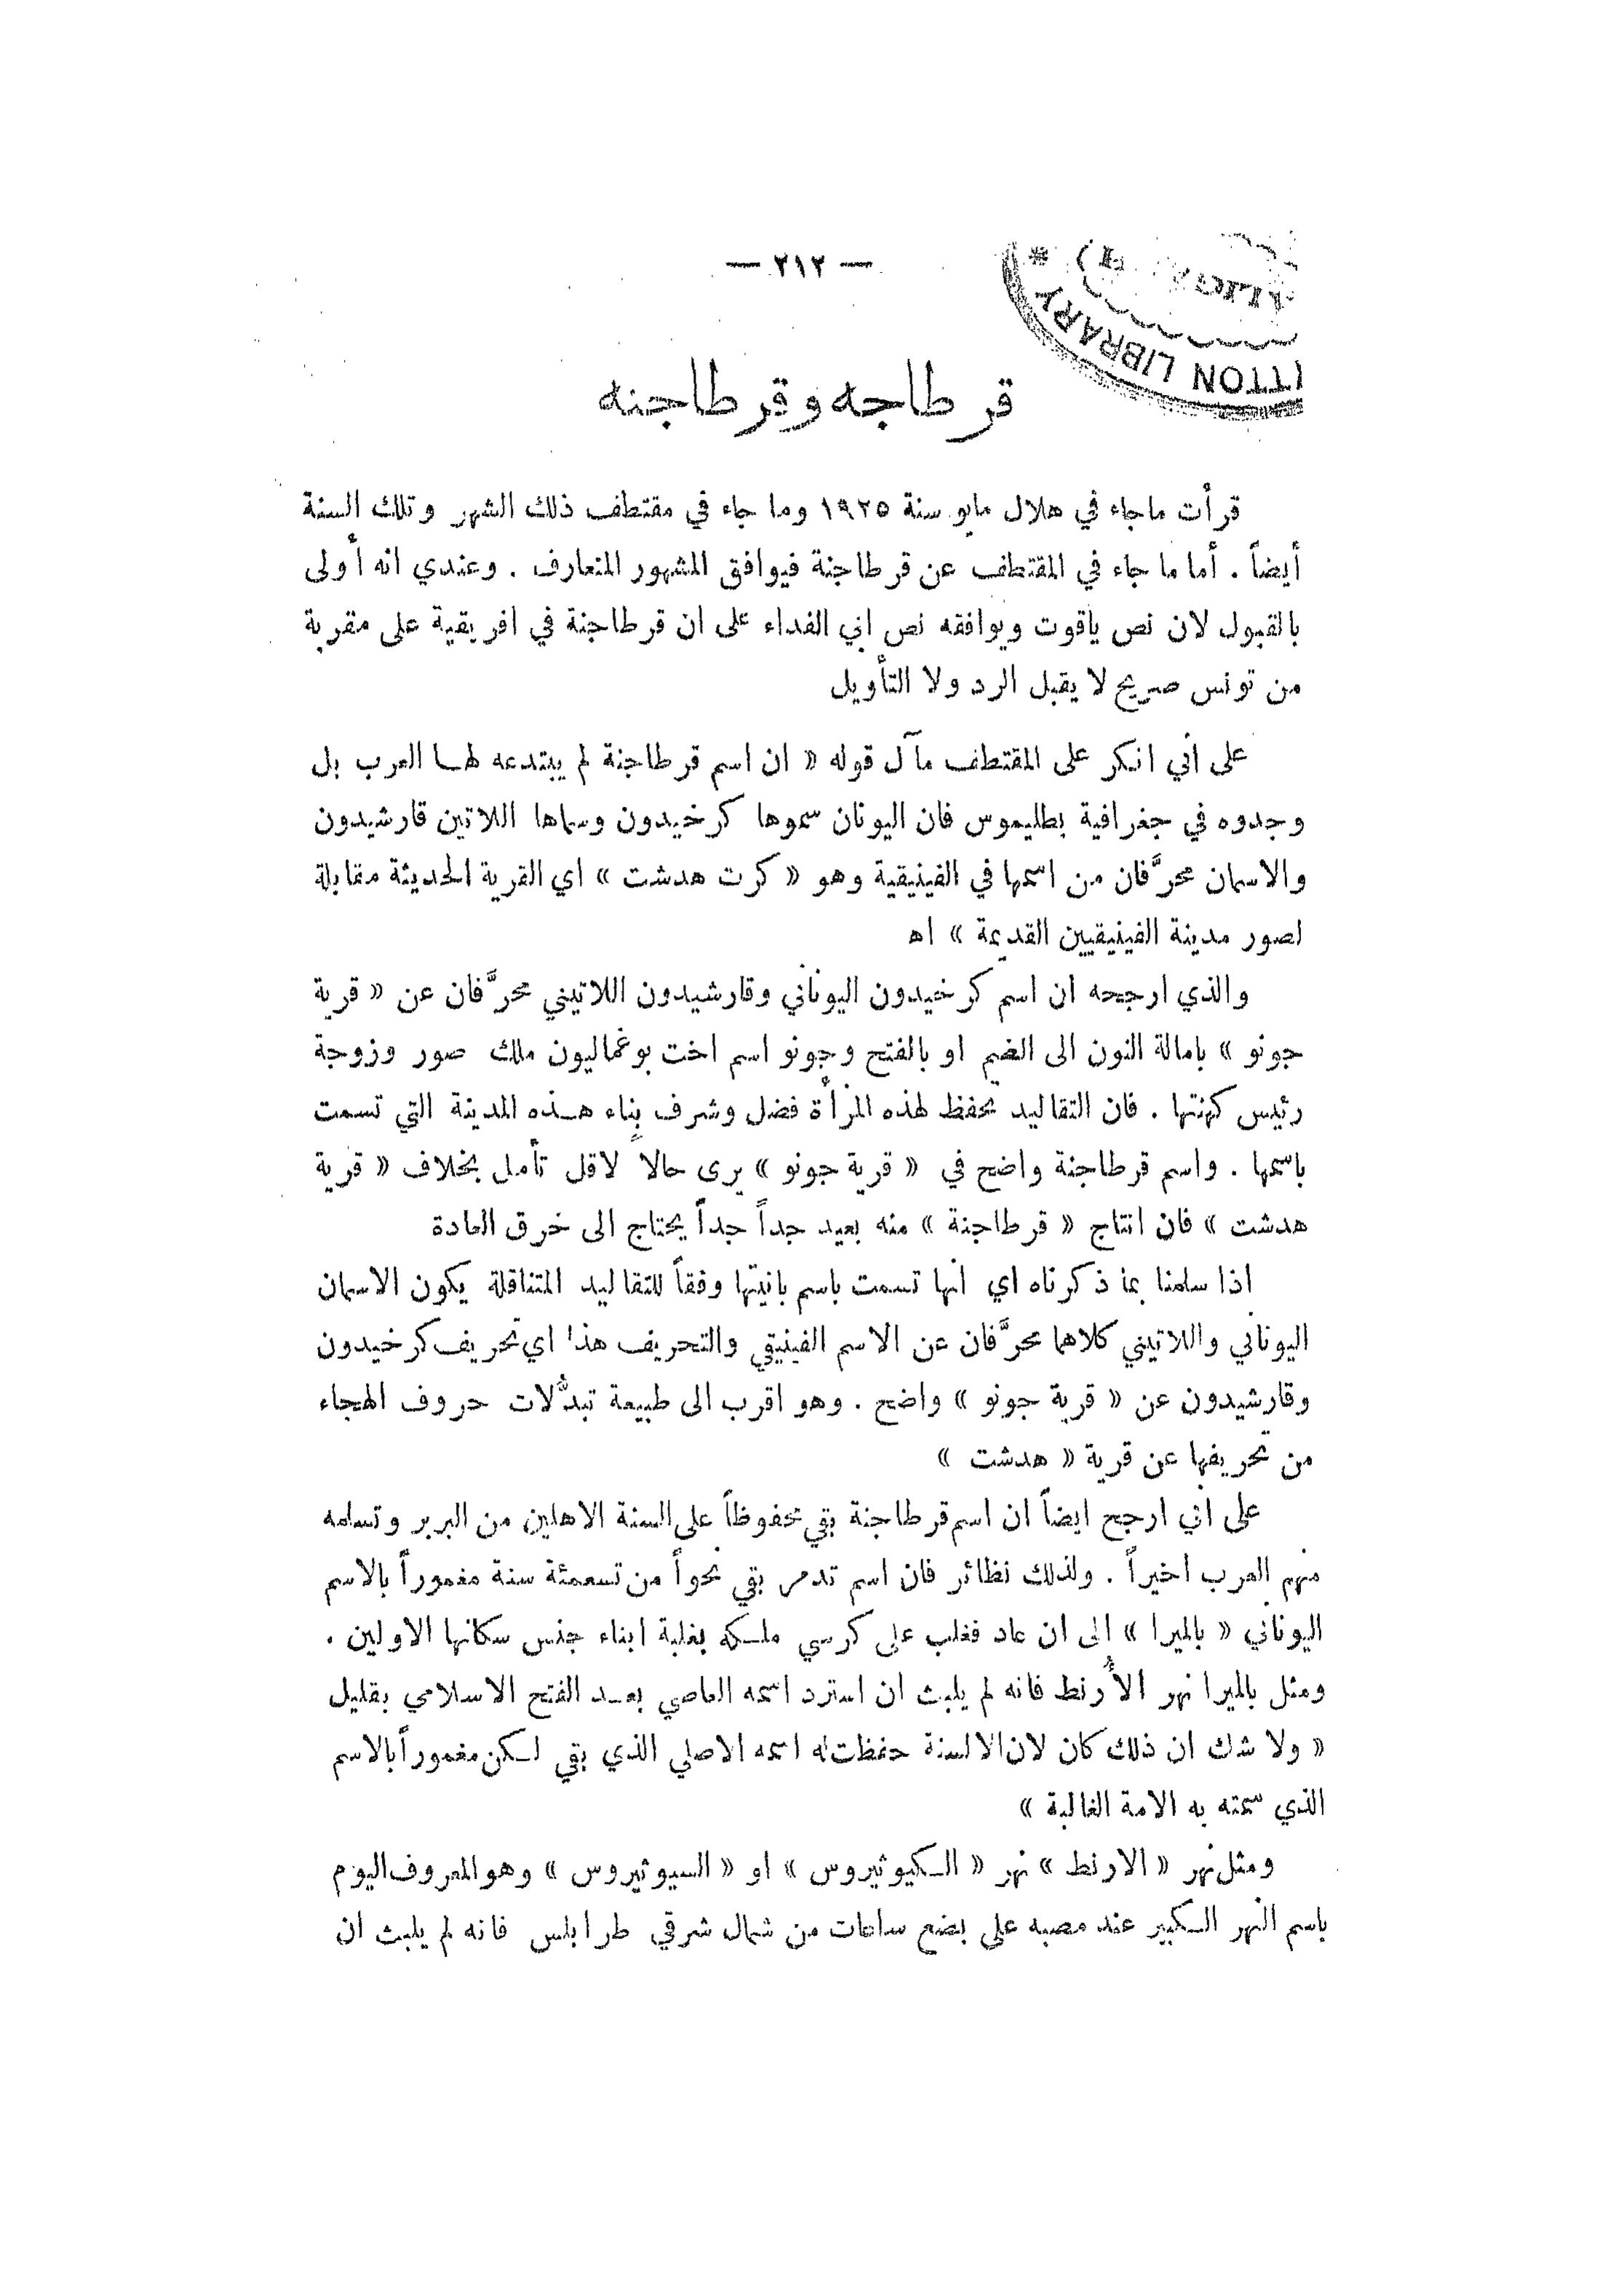 — ٢١٢ —
ITTON LIBRARY *
قرطاجه وقرطاجنه
قرأت ماجاء في هلال مايو سنة ١٩٢٥ وما جاء في مقتطف ذلك الشهر وتلك السنة
أيضاً . أما ما جاء في المقتطف عن قرطاجنة فيوافق المشهور المتعارف . وعندي انه أولى
بالقبول لان نص ياقوت ويوافقه نص ابي الفداء على ان قرطاجنة في افريقية على مقربة
من تونس صريح لا يقبل الرد ولا التأويل
على أني انكر على المقتطف مآل قوله « ان اسم قرطاجنة لم يبتدعه لها العرب بل
وجدوه في جغرافية بطليموس فان اليونان سموها كرخيدون وسماها اللاتين قارشيدون
والاسمان محرَّفان من اسمها في الفينيقية وهو « كرت هدشت » اي القرية الحديثة مقابلة
لصور مدينة الفينيقيين القديمة » اه
والذي ارجحه ان اسم كرخيدون اليوناني وقارشيدون اللاتيني محرَّفان عن « قرية
جونو » بامالة النون الى الضم او بالفتح وجونو اسم اخت بوغماليون ملك صور وزوجة
رئيس كهنتها . فان التقاليد تحفظ لهذه المرأة فضل وشرف بِناء هذه المدينة التي تسمت
باسمها . واسم قرطاجنة واضح في « قرية جونو » يرى حالاً لاقل تأمل بخلاف « قرية
هدشت » فان انتاج « قرطاجنة » منه بعيد جداً جداً يحتاج الى خرق العادة
اذا سلمنا بما ذكرناه اي انها تسمت باسم بانيتها وفقاً للتقاليد المتناقلة يكون الاسمان
اليوناني واللاتيني كلاهما محرَّفان عن الاسم الفينيقي والتحريف هذا اي تحريف كرخيدون
وقارشيدون عن « قرية جونو » واضح . وهو اقرب الى طبيعة تبدُّلات حروف الهجاء
من تحريفها عن قرية « هدشت »
على اني ارجح ايضاً ان اسم قرطاجنة بقي محفوظاً على السنة الاهلين من البربر وتسلمه
منهم العرب اخيراً . ولذلك نظائر فان اسم تدمر بقي نحواً من تسعمئة سنة مغموراً بالاسم
اليوناني « بالميرا » الى ان عاد فغلب على كرسي ملكه بغلبة ابناء جنس سكانها الاولين .
ومثل بالميرا نهر الأُرنط فانه لم يلبث ان استرد اسمه العاصي بعد الفتح الاسلامي بقليل
« ولا شك ان ذلك كان لان الالسنة حفظت له اسمه الاصلي الذي بقي لكن مغموراً بالاسم
الذي سمته به الامة الغالبة »
ومثل نهر « الارنط » نهر « الكيوثيروس » او « السيوثيروس » وهو المعروف اليوم
باسم النهر الكبير عند مصبه على بضع ساعات من شمال شرقي طرابلس فانه لم يلبث ان